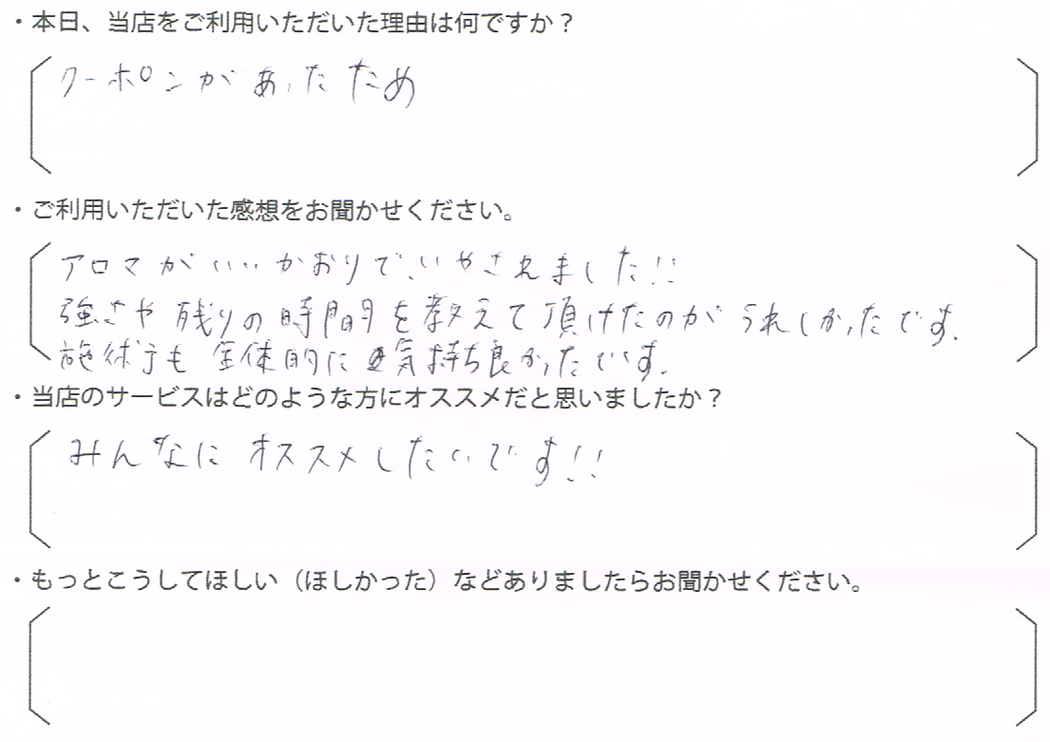 ・本日、当店をご利用いただいた理由は何ですか？
クーポンがあったため
・ご利用いただいた感想をお聞かせください。
アロマがいいかおりで、いやされました!!
強さや残りの時間を教えて頂けたのがうれしかったです.
施術も全体的に気持ち良かったです.
・当店のサービスはどのような方にオススメだと思いましたか？
みんなにオススメしたいです!!
・もっとこうしてほしい（ほしかった）などありましたらお聞かせください。